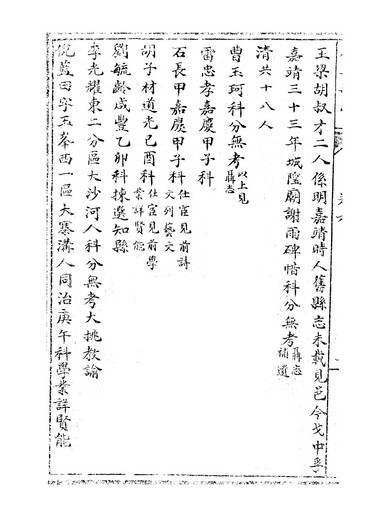 王梁胡叔才二人係明嘉靖時人舊縣志未載見邑令戈中孚
嘉靖三十三年城隍廟謝雨碑惜科分無考聶志補遺
清共十八人
曹玉珂科分無考以上見聶志
雷忠孝嘉慶甲子科
石長甲嘉慶甲子科仕宦見前詩文列藝文
胡子材道光己酉科仕宦見前學業詳賢能
劉毓齡咸豐乙卯科揀選知縣
李光耀東二分區大沙河人科分無考大挑教諭
倪藍田字玉峯西一區大寨溝人同治庚午科學業詳賢能